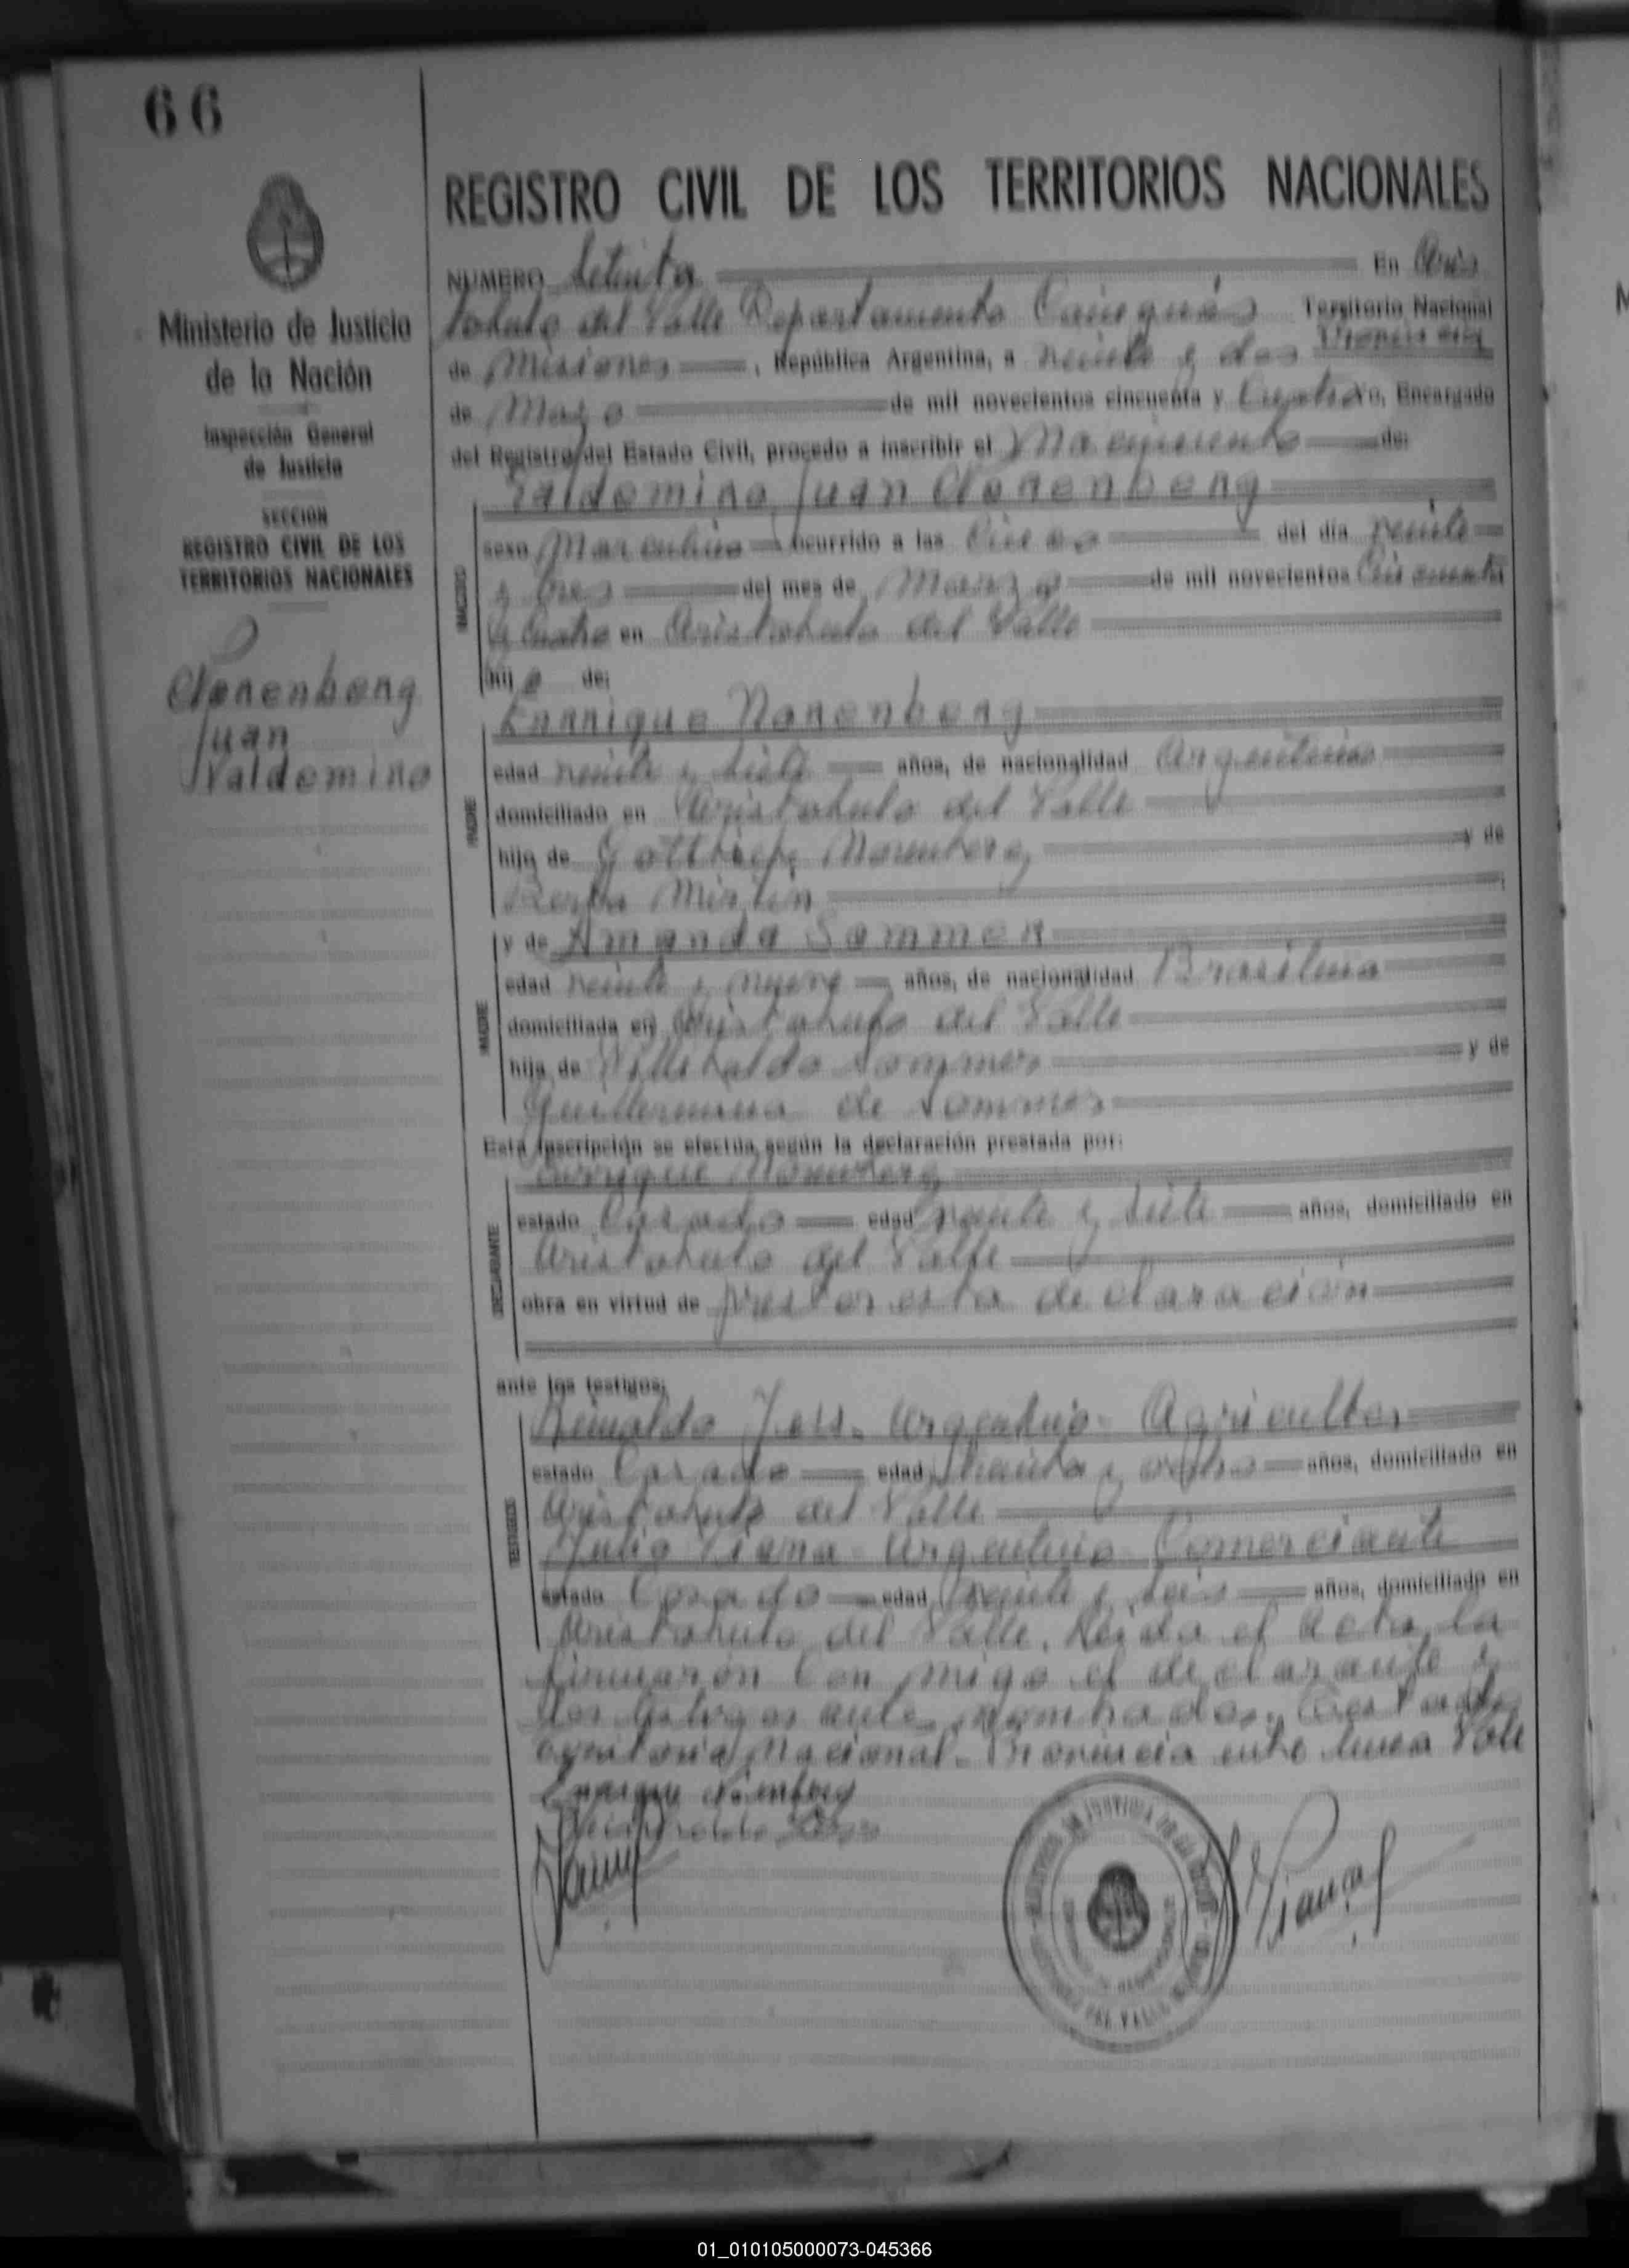 66
REGISTRO CIVIL DE LOS TERRITORIOS NACIONALES
NUMERO Setenta En Aris
tobulo del Valle Departamento Cainguás Territorio Nacional
Provincia
de Misiones, República Argentina, a veinte y dos
de Mayo de mil novecientos cincuenta y Cuatro Yo, Encargado
del Registro del Estado Civil, procedo a inscribir el Nacimiento de:
Valdemino Juan Nonenbeng
sexo Masculino ocurrido a las Cinco del día veinte
y tres del mes de Marzo de mil novecientos Cincuenta
y Cuatro en Aristobulo del Valle
hijo de:
Ennique Nonenbeng
edad veinte y siete años, de nacionalidad Argentino
domiciliado en Aristobulo del Valle
hijo de y de
Berta
y de Amanda Sommen
edad veinte y nueve años, de nacionalidad Brasilera
domiciliada en Aristobulo del Valle
hija de Sommer y de
Guillermina de Sommer
Esta inscripción se efectúa según la declaración prestada por:
Enrique
estado Casado edad veinte y siete años, domiciliado en
Aristobulo del Valle
obra en virtud de prestar esta declaración
ante los testigos:
Reinaldo Argentino Agricultor
estado Casado edad treinta y ocho años, domiciliado en
Aristobulo del Valle
Julio Argentino Comerciante
estado Casado edad veinte y seis años, domiciliado en
Aristobulo del Valle. Leida el Acta, la
firmaron Con migo el declarante y
los testigos ante nombrados. Testado
Nacional Provincia entre linea Vale
Ministerio de Justicia
de la Nación
Inspección General
de Justicia
SECCION
REGISTRO CIVIL DE LOS
TERRITORIOS NACIONALES
Nonenbeng
Juan
Valdemino
NACIDO
PADRE
MADRE
DECLARANTE
TESTIGOS
01_010105000073-045366